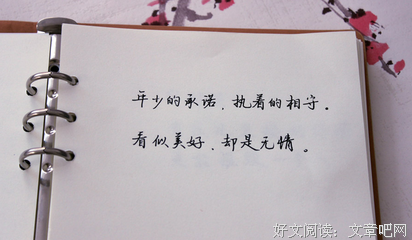 年少的承诺，执着的相守。
看似美好，却是无情。
好文阅读：文章吧网